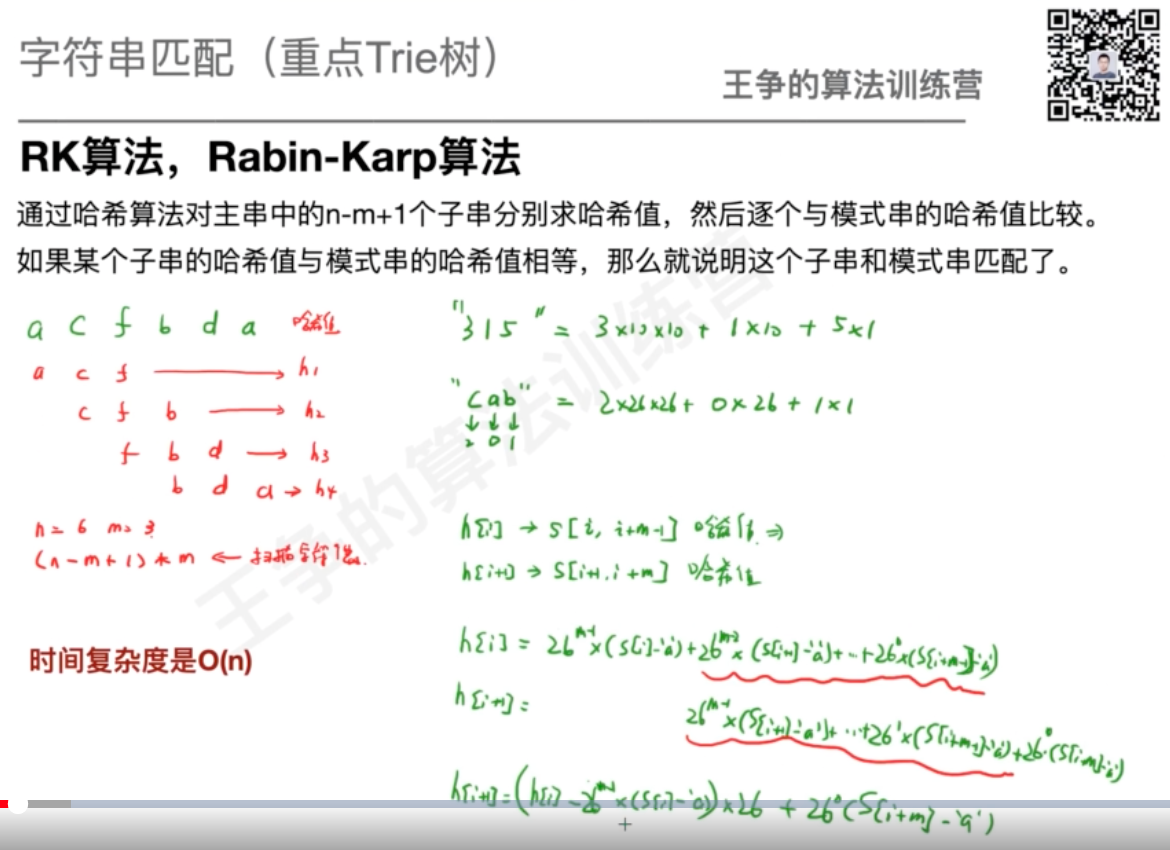 字符串匹配（重点Trie树）
王争的算法训练营
RK算法，Rabin-Karp算法
通过哈希算法对主串中的n-m+1个子串分别求哈希值，然后逐个与模式串的哈希值比较。
如果某个子串的哈希值与模式串的哈希值相等，那么就说明这个子串和模式串匹配了。
a c f b d a 哈希值
a c f → h1
c f b → h2
f b d → h3
b d a → h4
n = 6 m = 3
(n-m+1)*m ←
时间复杂度是O(n)
"315" = 3×10×10 + 1×10 + 5×1
"cab" = 2×26×26 + 0×26 + 1×1
↓ ↓ ↓
2 0 1
h[i] → S[i, i+m-1] 哈希值 ⇒
h[i+1] → S[i+1, i+m] 哈希值
h[i] = 26^m-1 × (S[i]-'a') + 26^m-2 × (S[i+1]-'a') + ... + 26^0 × (S[i+m-1]-'a')
h[i+1] = 26^m-1 × (S[i+1]-'a') + ... + 26^1 × (S[i+m-1]-'a') + 26^0 · (S[i+m]-'a')
h[i+1] = (h[i] - 26^m-1 × (S[i]-'a')) × 26 + 26^0 (S[i+m]-'a')
王争的算法训练营